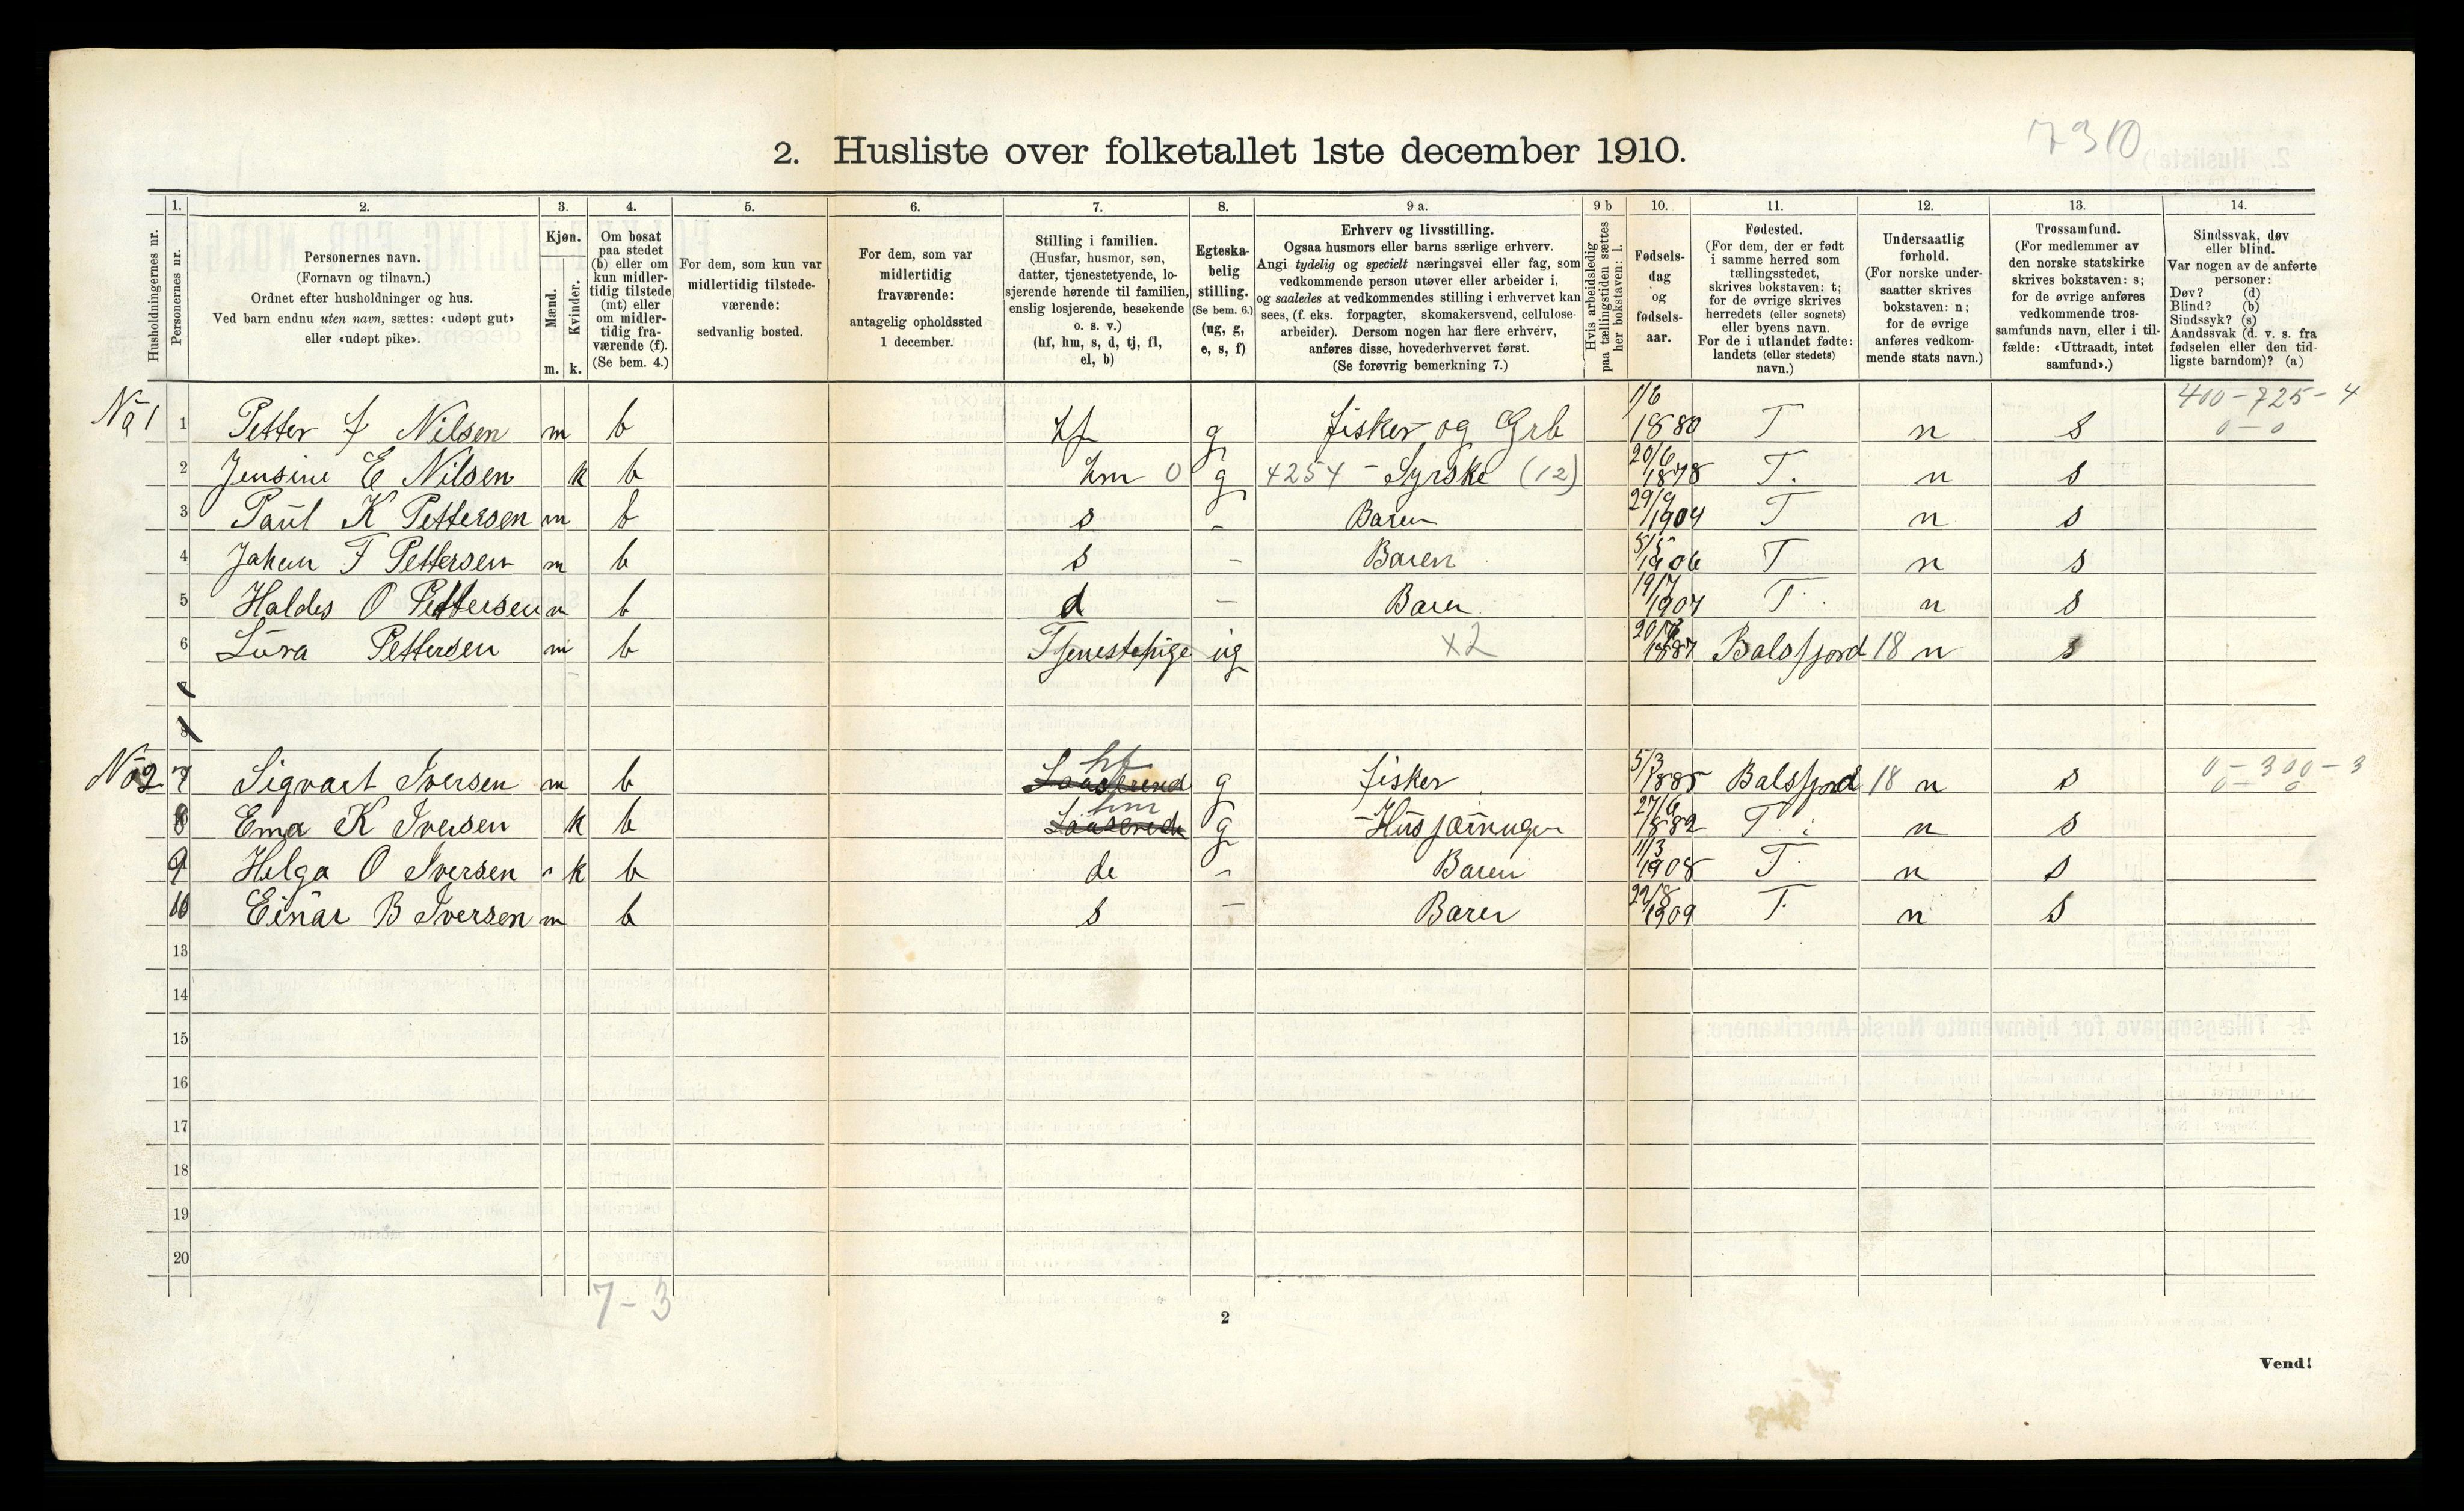 7310
2. Husliste over folketallet 1ste december 1910.
Husholdningernes nr.
1. Personernes nr.
2. Personernes navn.
(Fornavn og tilnavn.)
Ordnet efter husholdninger og hus.
Ved barn endnu uten navn, sættes: «udøpt gut»
eller «udøpt pike».
3. Kjøn.
Mænd. m.
Kvinder. k.
4. Om bosat
paa stedet
(b) eller om
kun midler-
tidig tilstede
(mt) eller
om midler-
tidig fra-
værende (f).
(Se bem. 4.)
5. For dem, som kun var
midlertidig tilstede-
værende:
sedvanlig bosted.
6. For dem, som var
midlertidig
fraværende:
antagelig opholdssted
1 december.
7. Stilling i familien.
(Husfar, husmor, søn,
datter, tjenestetyende, lo-
sjerende hørende til familien,
enslig losjerende, besøkende
o. s. v.)
(hf, hm, s, d, tj, fl,
el, b)
8. Egteska-
belig
stilling.
(Se bem. 6.)
(ug, g,
e, s, f)
9 a. Erhverv og livsstilling.
Ogsaa husmors eller barns særlige erhverv.
Angi tydelig og specielt næringsvei eller fag, som
vedkommende person utøver eller arbeider i,
og saaledes at vedkommendes stilling i erhvervet kan
sees, (f. eks. forpagter, skomakersvend, cellulose-
arbeider). Dersom nogen har flere erhverv,
anføres disse, hovederhvervet først.
(Se forøvrig bemerkning 7.)
9 b Hvis arbeidsledig
paa tællingstiden sættes
her bokstaven: l.
10. Fødsels-
dag
og
fødsels-
aar.
11. Fødested.
(For dem, der er født
i samme herred som
tællingsstedet,
skrives bokstaven: t;
for de øvrige skrives
herredets (eller sognets)
eller byens navn.
For de i utlandet fødte:
landets (eller stedets)
navn.)
12. Undersaatlig
forhold.
(For norske under-
saatter skrives
bokstaven: n;
for de øvrige
anføres vedkom-
mende stats navn.)
13. Trossamfund.
(For medlemmer av
den norske statskirke
skrives bokstaven: s;
for de øvrige anføres
vedkommende tros-
samfunds navn, eller i til-
fælde: «Uttraadt, intet
samfund».)
14. Sindssvak, døv
eller blind.
Var nogen av de anførte
personer:
Døv? (d)
Blind? (b)
Sindssyk? (s)
Aandssvak (d. v. s. fra
fødselen eller den tid-
ligste barndom)? (a)
No 1 1 Petter f Nilsen m b hf g fisker og Grb 1/6 1880 T n s 400-725-4 0-0
2 Jensine E Nilsen k b hm 0 g 4254 - Syrske (12) 20/6 1878 T. n s
3 Paul K Pettersen m b s - Baren 29/9 1904 T n s
4 Johan F Pettersen m b s - Baren 5/5 1906 T n s
5 Haldis O Pettersen b d - Baren 19/7 1907 T n s
6 Lura Pettersen m b Tjenestepige ug x2 1887 Balsfjord 18 n s
7
8
No 2 7 Sigvart Iversen m b hf g fisker 5/3 1885 Balsfjord 18 n s 0-300-3 0-0
8 Ema K Iversen k b hm g 27/6 1882 T n s
9 Helga O Iversen k b de - Baren 11/3 1908 T n s
10 Einar B Iversen m b s - Baren 22/8 1909 T n s
13
14
15
16
17
18
19
20
7-3
2
Vend!